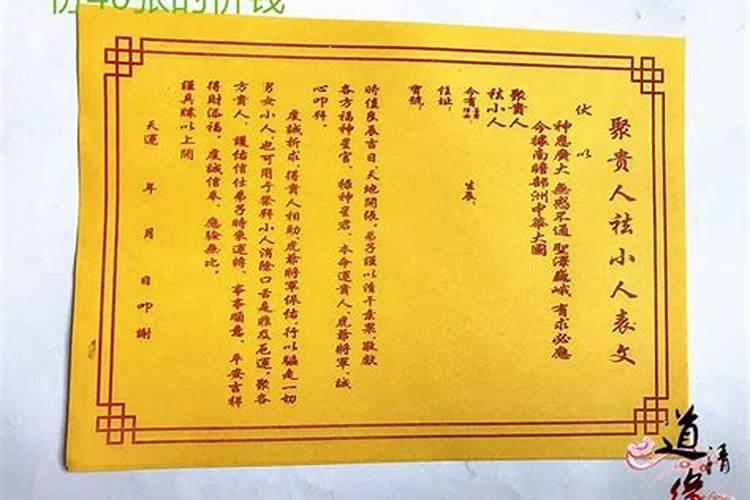 份40张的价钱
聚貴人祛小人表文
伏以
神恩廣大 無感不通 聖澤巍峨 有求必應
今據南瞻部洲中華大國
聚貴人
祛小人
今有
生辰
住址
寶號
時值良辰吉日，天地開張，弟子謹以清千素果敬獻
各方福神星官、祿神星君、本命運貴人、虎爺將軍，誠
心叩拜。
虔誠祈求，得貴人相助虎爺將軍保佑，行以驅走一切
男女小人，也可用于祭拜小人消除口舌是非及厄運，聚各
方貴人，護佑信仕弟子時來運轉，事事順意，平安吉祥
得財添福，虔誠信奉，應驗無比。
謹具牒以上聞
天運 年 月 日叩謝
道
清
缘